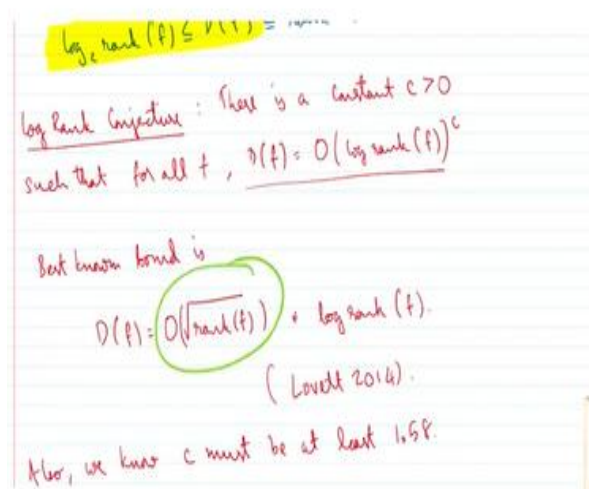 log₂ rank(f) ≤ D(f) ≤
Log Rank Conjecture : There is a constant c>0
such that for all f, D(f) = O(log rank(f))^c
Best known bound is
D(f) = O(√rank(f)) · log rank(f).
(Lovett 2014).
Also, we know c must be at least 1.58.